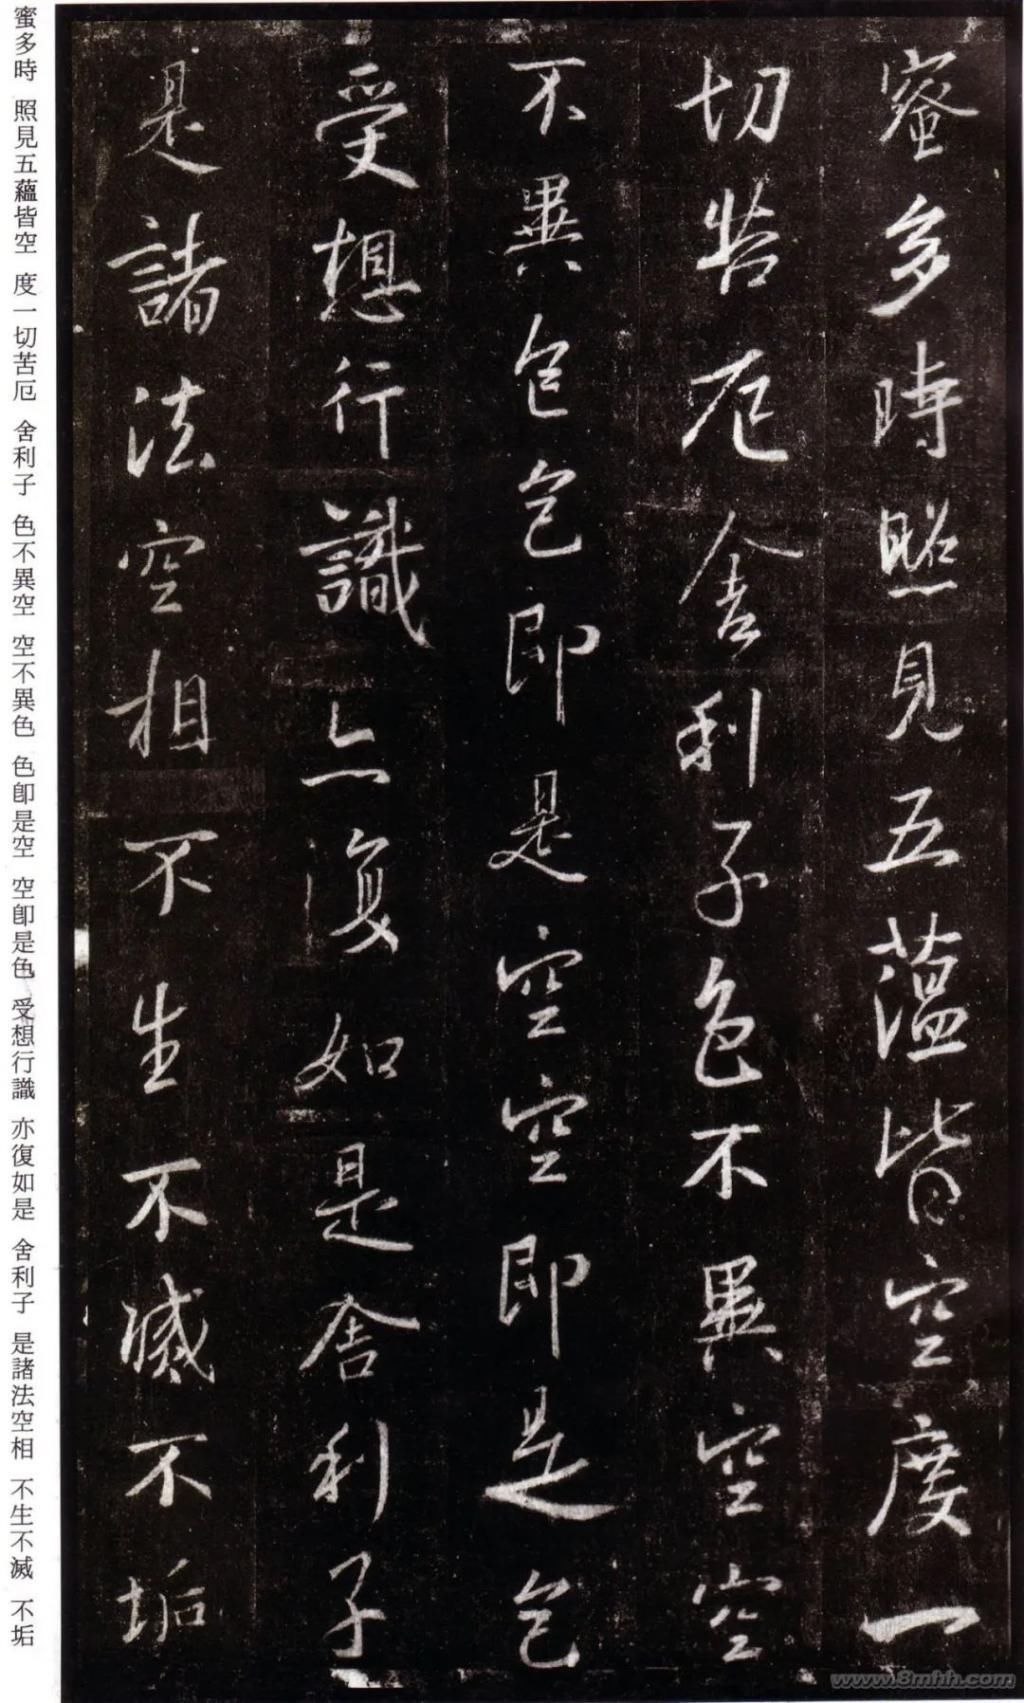 蜜多時照見五蘊皆空度一
切苦厄舍利子色不異空空
不異色色即是空空即是色
受想行識亦復如是舍利子
是諸法空相不生不滅不垢
蜜多時 照見五蘊皆空 度一切苦厄 舍利子 色不異空 空不異色 色卽是空 空卽是色 受想行識 亦復如是 舍利子 是諸法空相 不生不滅 不垢
www.8mhh.com